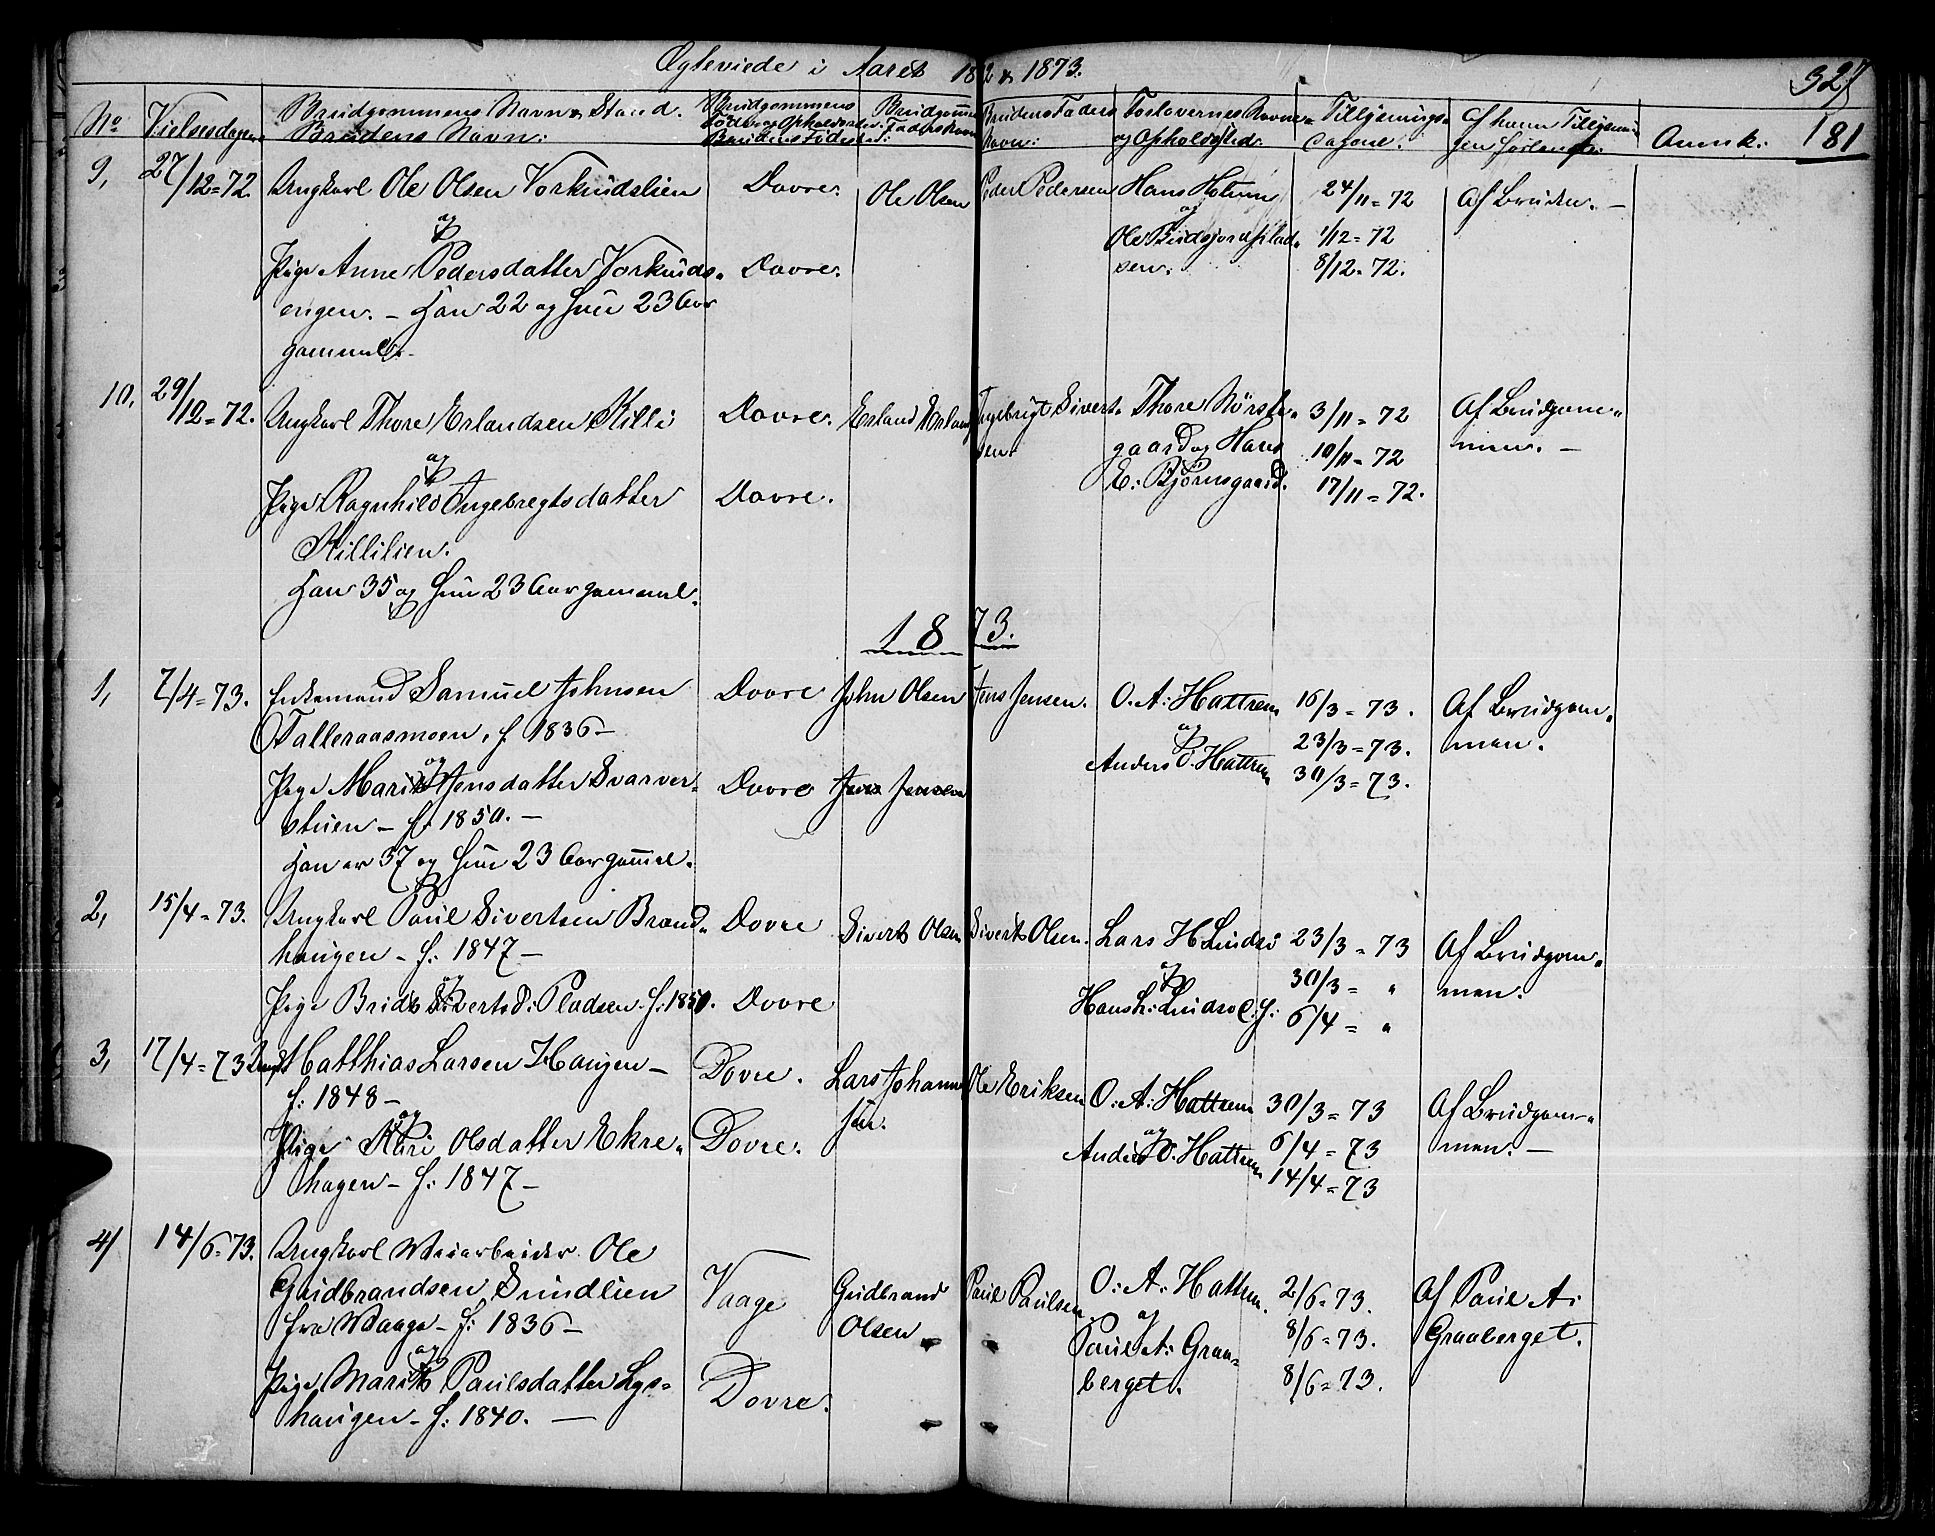 Ægteviede i Aaret 1872 & 1873.
327
181
No
Vielsesdagen
Brudgommens Navn & Stand.
Brudens Navn:
Brudgommens
Føde- og Opholdssted:
Brudens Fødested:
Brudgommens
Faders Navn
Brudens Faders
Navn:
Forlovernes Navne
og Opholdssted.
Tillysnings-
dagene.
Af hvem Tillysnin-
gen forlanges:
Anmk:
9, 27/12=72. Ungkarl Ole Olsen Vorkindslien Dovre. Ole Olsen Peder Pedersen Hans Hotum 24/11=72 Af Bruden. -
og og
Ole Budsjordplad- 1/12=72
Pige Anne Pedersdatter Vorkinds- Dovre. sen. 8/12=72.
engen. - Han 22 og Hun 23 Aar
gammel. -
10, 29/12=72. Ungkarl Thore Erlandsen Killi Dovre. Erland Erlands Ingebrigt Sivert- Thore Nørste- 3/11=72 Af Brudgom-
sen. gaard og Hans 10/11=72 men. -
og E: Bjørnsgaard. 17/11=72.
Pige Ragnhild Ingebregtsdatter Dovre.
Killilien.
Han 35 og Hun 23 Aar gammel.
1873.
1, 7/4=73. Enkemand Samuel Johnsen Dovre John Olsen Jens Jensen. O. A: Hattrem 16/3=73. Af Brudgom-
Talleraasmoen, f. 1836 - og 23/3=73. men.
og Anders O. Hattrem 30/3=73.
Pige Marit Jensdatter Svarver- Dovre Jens Jensen
stuen - f. 1850. -
Han er 37 og Hun 23 Aar gammel.
2, 15/4=73. Ungkarl Paul Sivertsen Brand- Dovre Sivert Olsen Sivert Olsen. Lars H Lindsø 23/3=73 Af Brudgom-
haugen - f: 1847 - og 30/3= " men.
og Hans L: Lindsø 6/4= "
Pige Brit Siverts D: Pladsen. f: 1850. Dovre
3, 17/4=73 Matthias Larsen Haugen - Dovre. Lars Johanne- Ole Eriksen O: A: Hattrem 30/3=73 Af Brudgom-
f: 1848 - sen. og 6/4=73 men. -
og Anders O. Hattrem 14/4=73
Pige Kari Olsdatter Ekre- Dovre.
hagen - f: 1847 -
4/ 14/6=73. Ungkarl Veiarbeider Ole
Gudbrandsen Sundlien Vaage Gudbrand Paul Paulsen O: A: Hattrem. 2/6=73. Af Paul A:
fra Waage - f: 1836 - Olsen og 8/6=73. Graaberget.
og Paul A: Graa- 8/6=73.
Pige Marit Paulsdatter Lys- Dovre. berget.
haugen - f: 1840. -